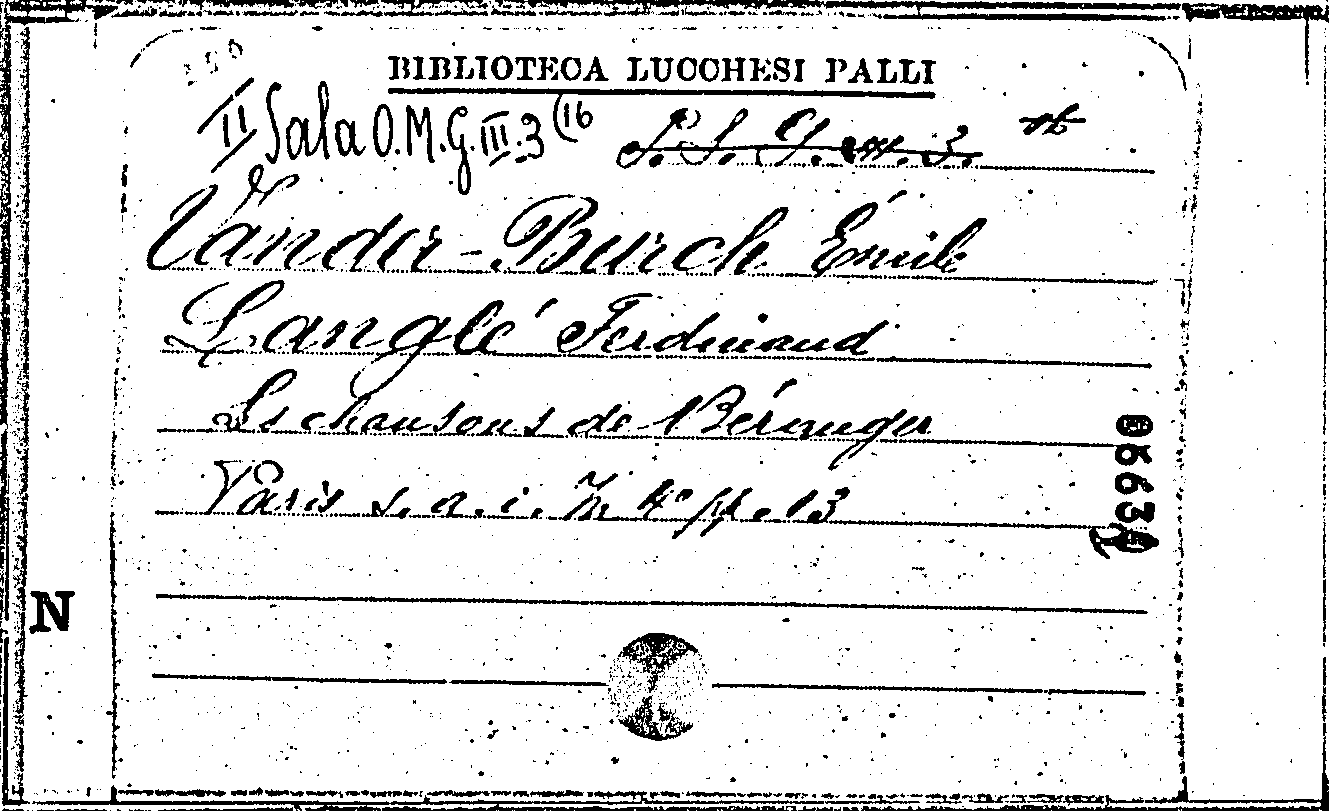 BIBLIOTECA LUCCHESI PALLI
II Sala O.M.G.III.3 (16
Vander-Burch Émile
Langlé Ferdinand
Les chansons de Béranger
Paris s. a. i. 4º pp. 13
N